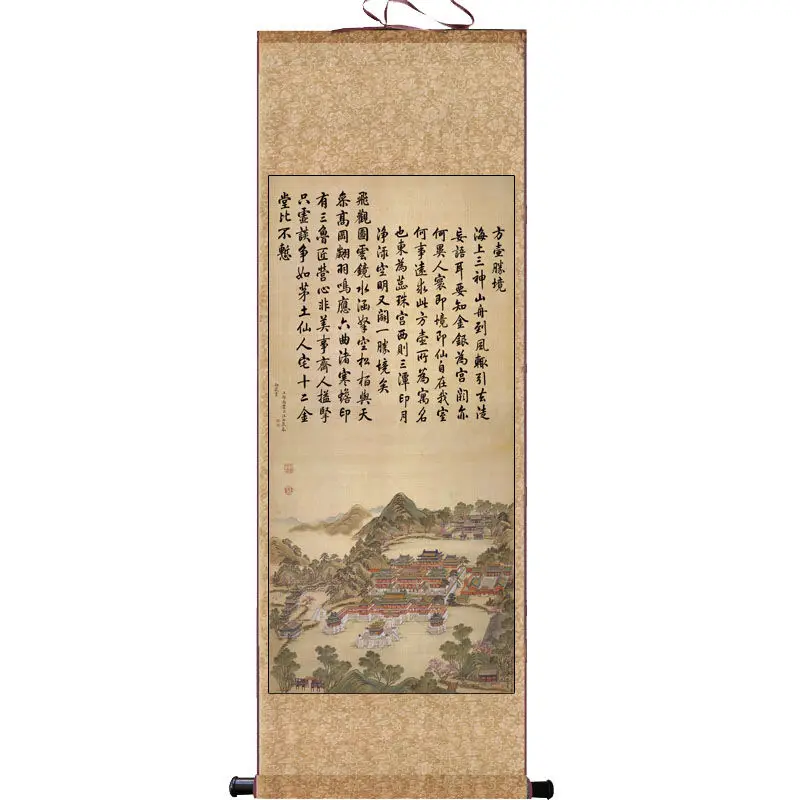 方壺勝境
海上三神山舟到風輙引去徒
妄語耳要知金銀為宮闕亦
何異人寰即境即仙自在我室
何事遠求此方壺所為寓名
也東為蕊珠宮西則三潭印月
淨淥空明又闢一勝境矣
飛觀圖雲鏡水涵拏空松栢與天
叅高岡翽羽鳴應六曲渚寒蟾印
有三魯匠營心非美事齊人搤掔
只虛談爭如茅土仙人宅十二金
堂比不慙